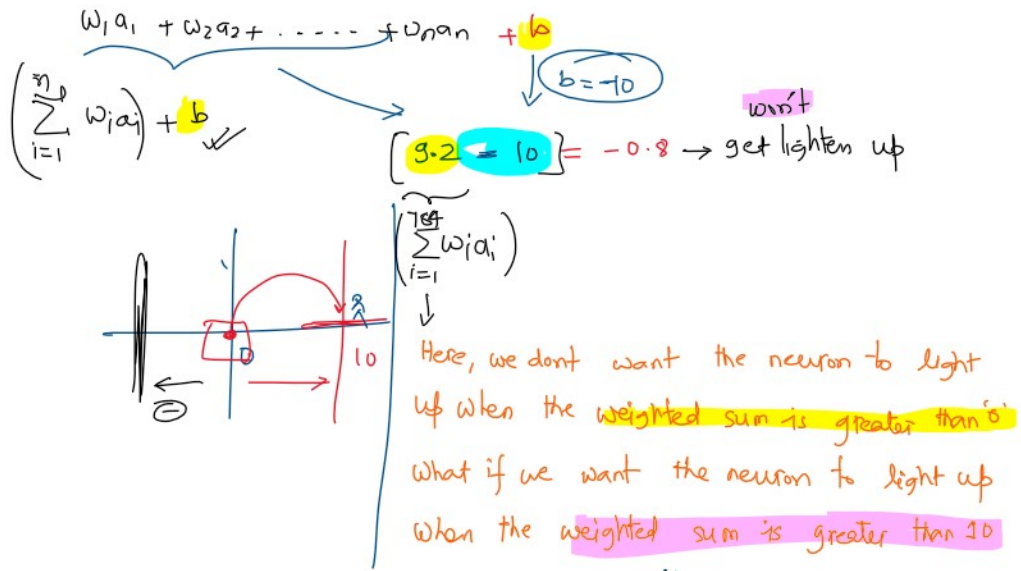 w₁a₁ + w₂a₂ + ..... + wₙaₙ + b
b = -10
(∑ᵢ₌₁ⁿ wᵢaᵢ) + b
won't
[9.2 - 10] = -0.8 → get lighten up
(∑ᵢ₌₁⁷⁸⁴ wᵢaᵢ)
0
10
Here, we dont want the neuron to light
up when the weighted sum is greater than '0'
What if we want the neuron to light up
when the weighted sum is greater than 10